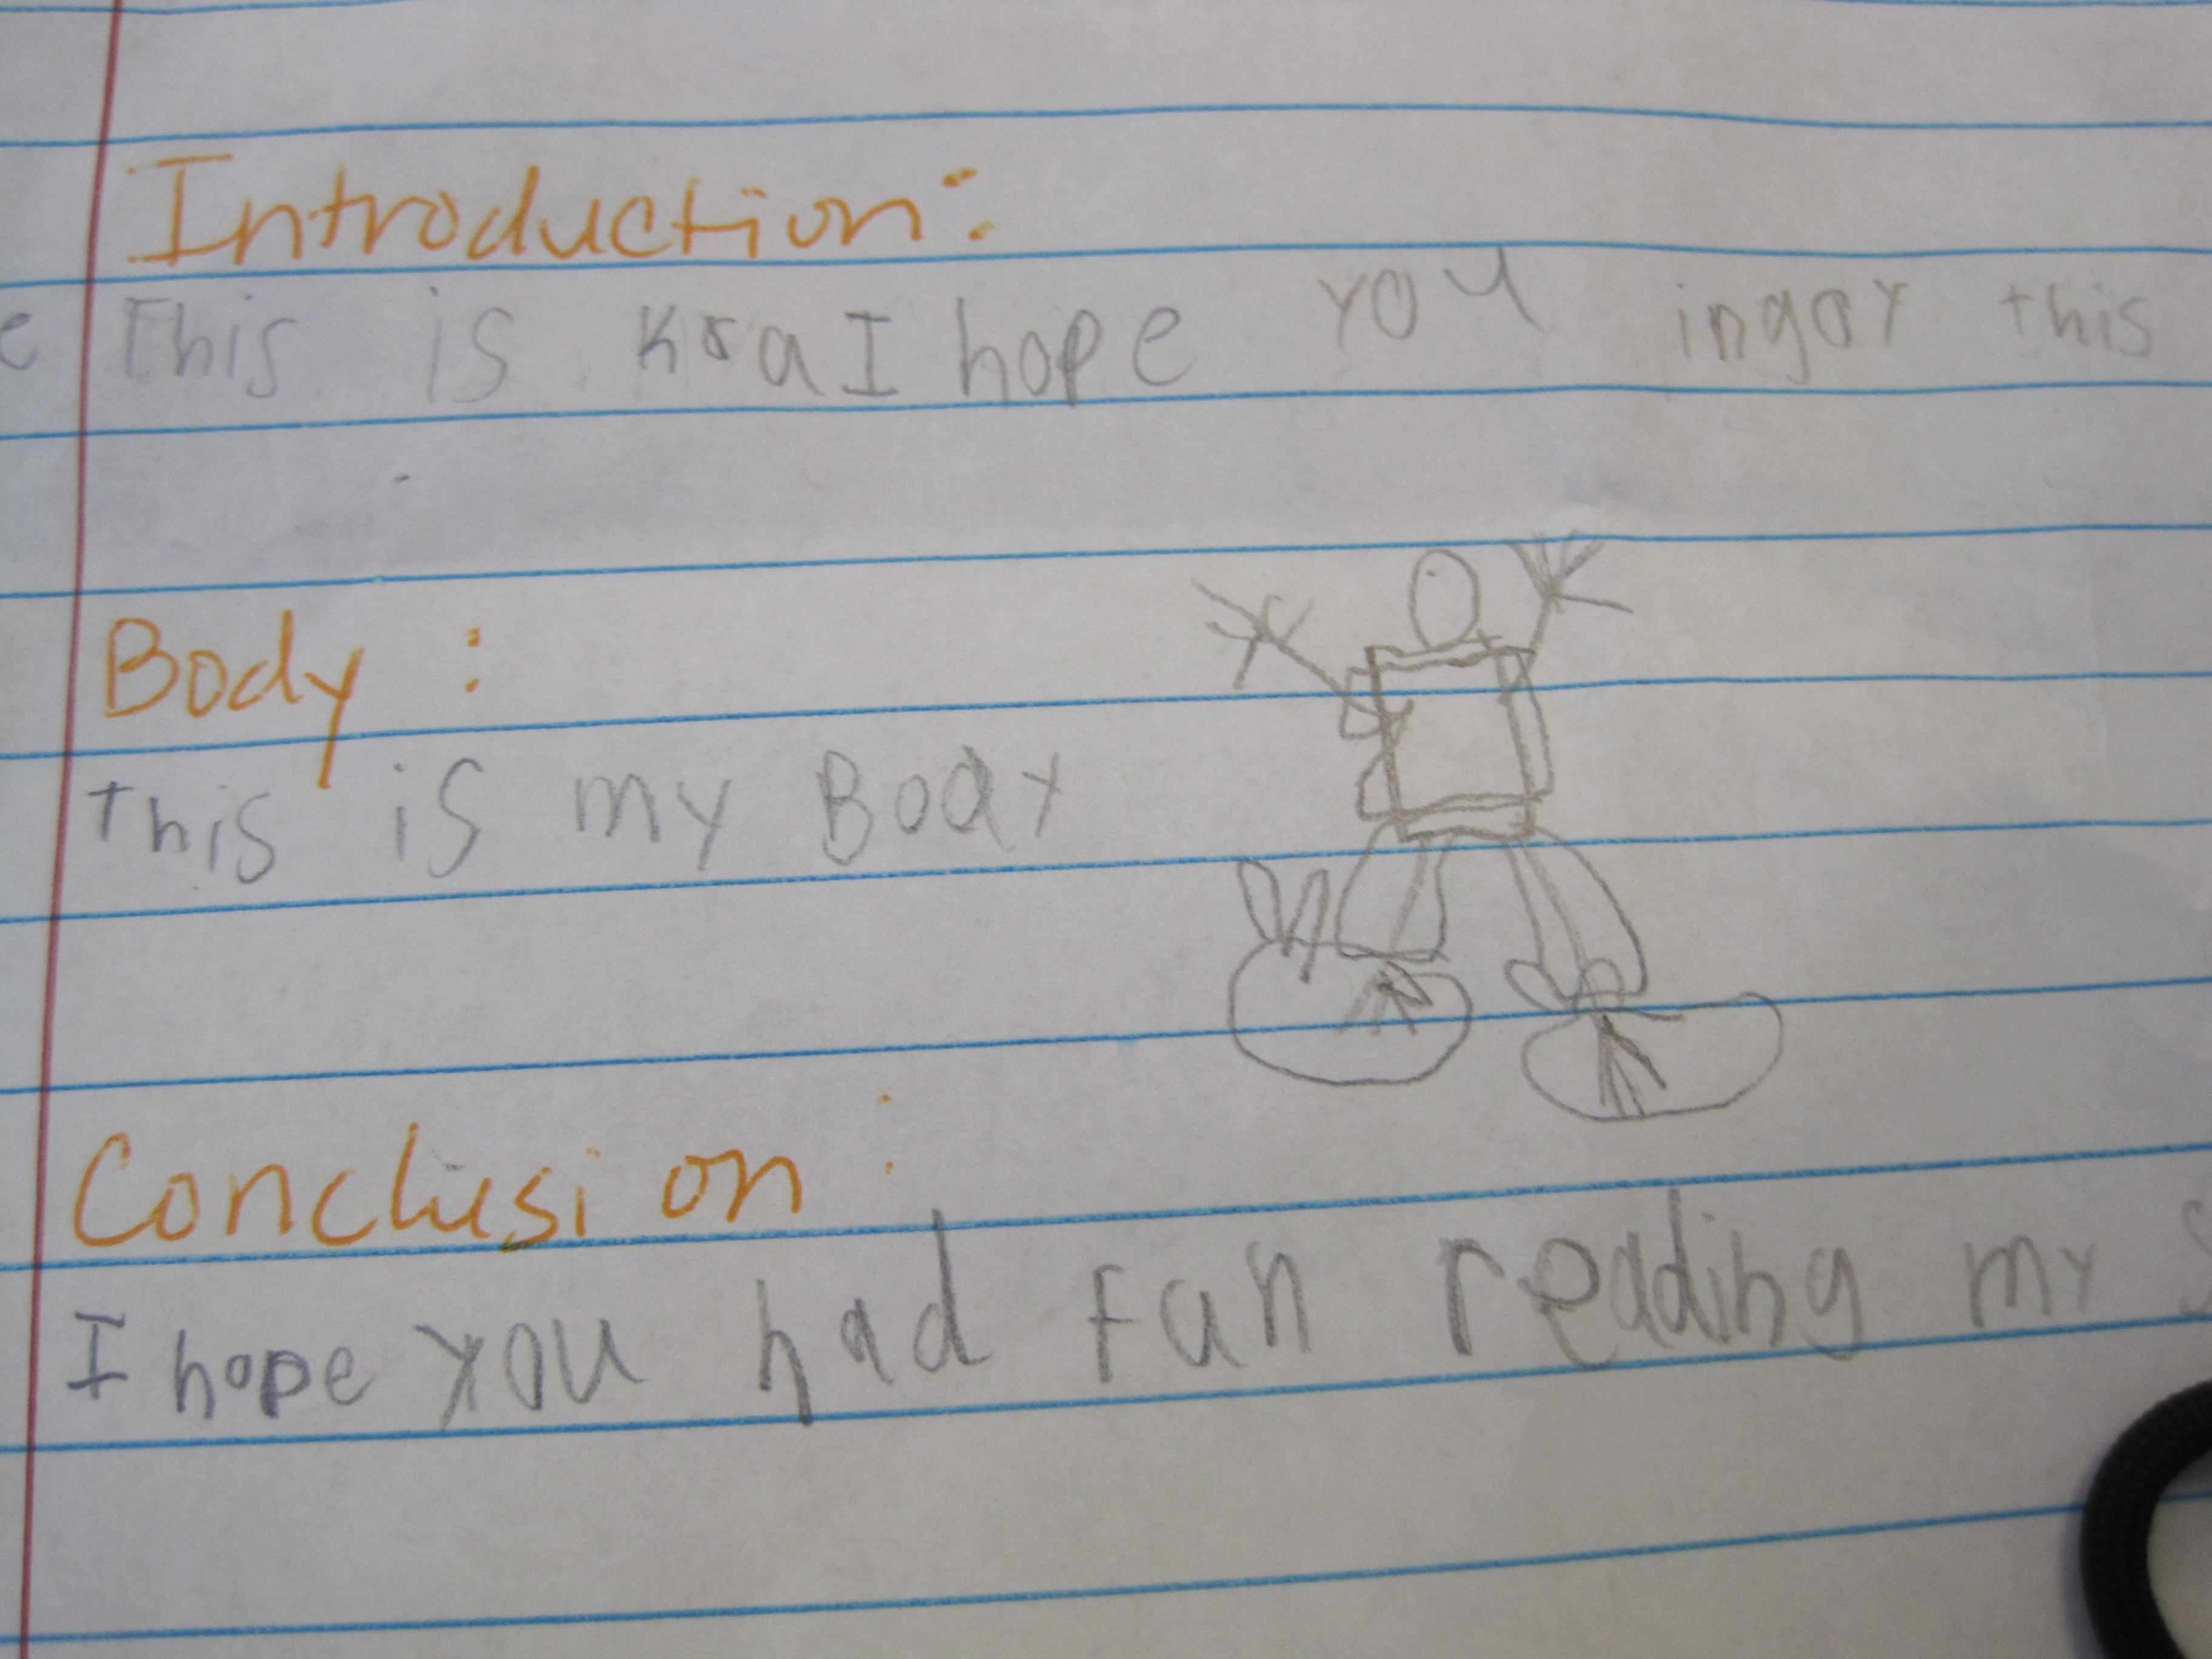 Introduction:
This is I hope you ingoy this
Body :
This is my Body
Conclusion :
I hope you had fun reading my